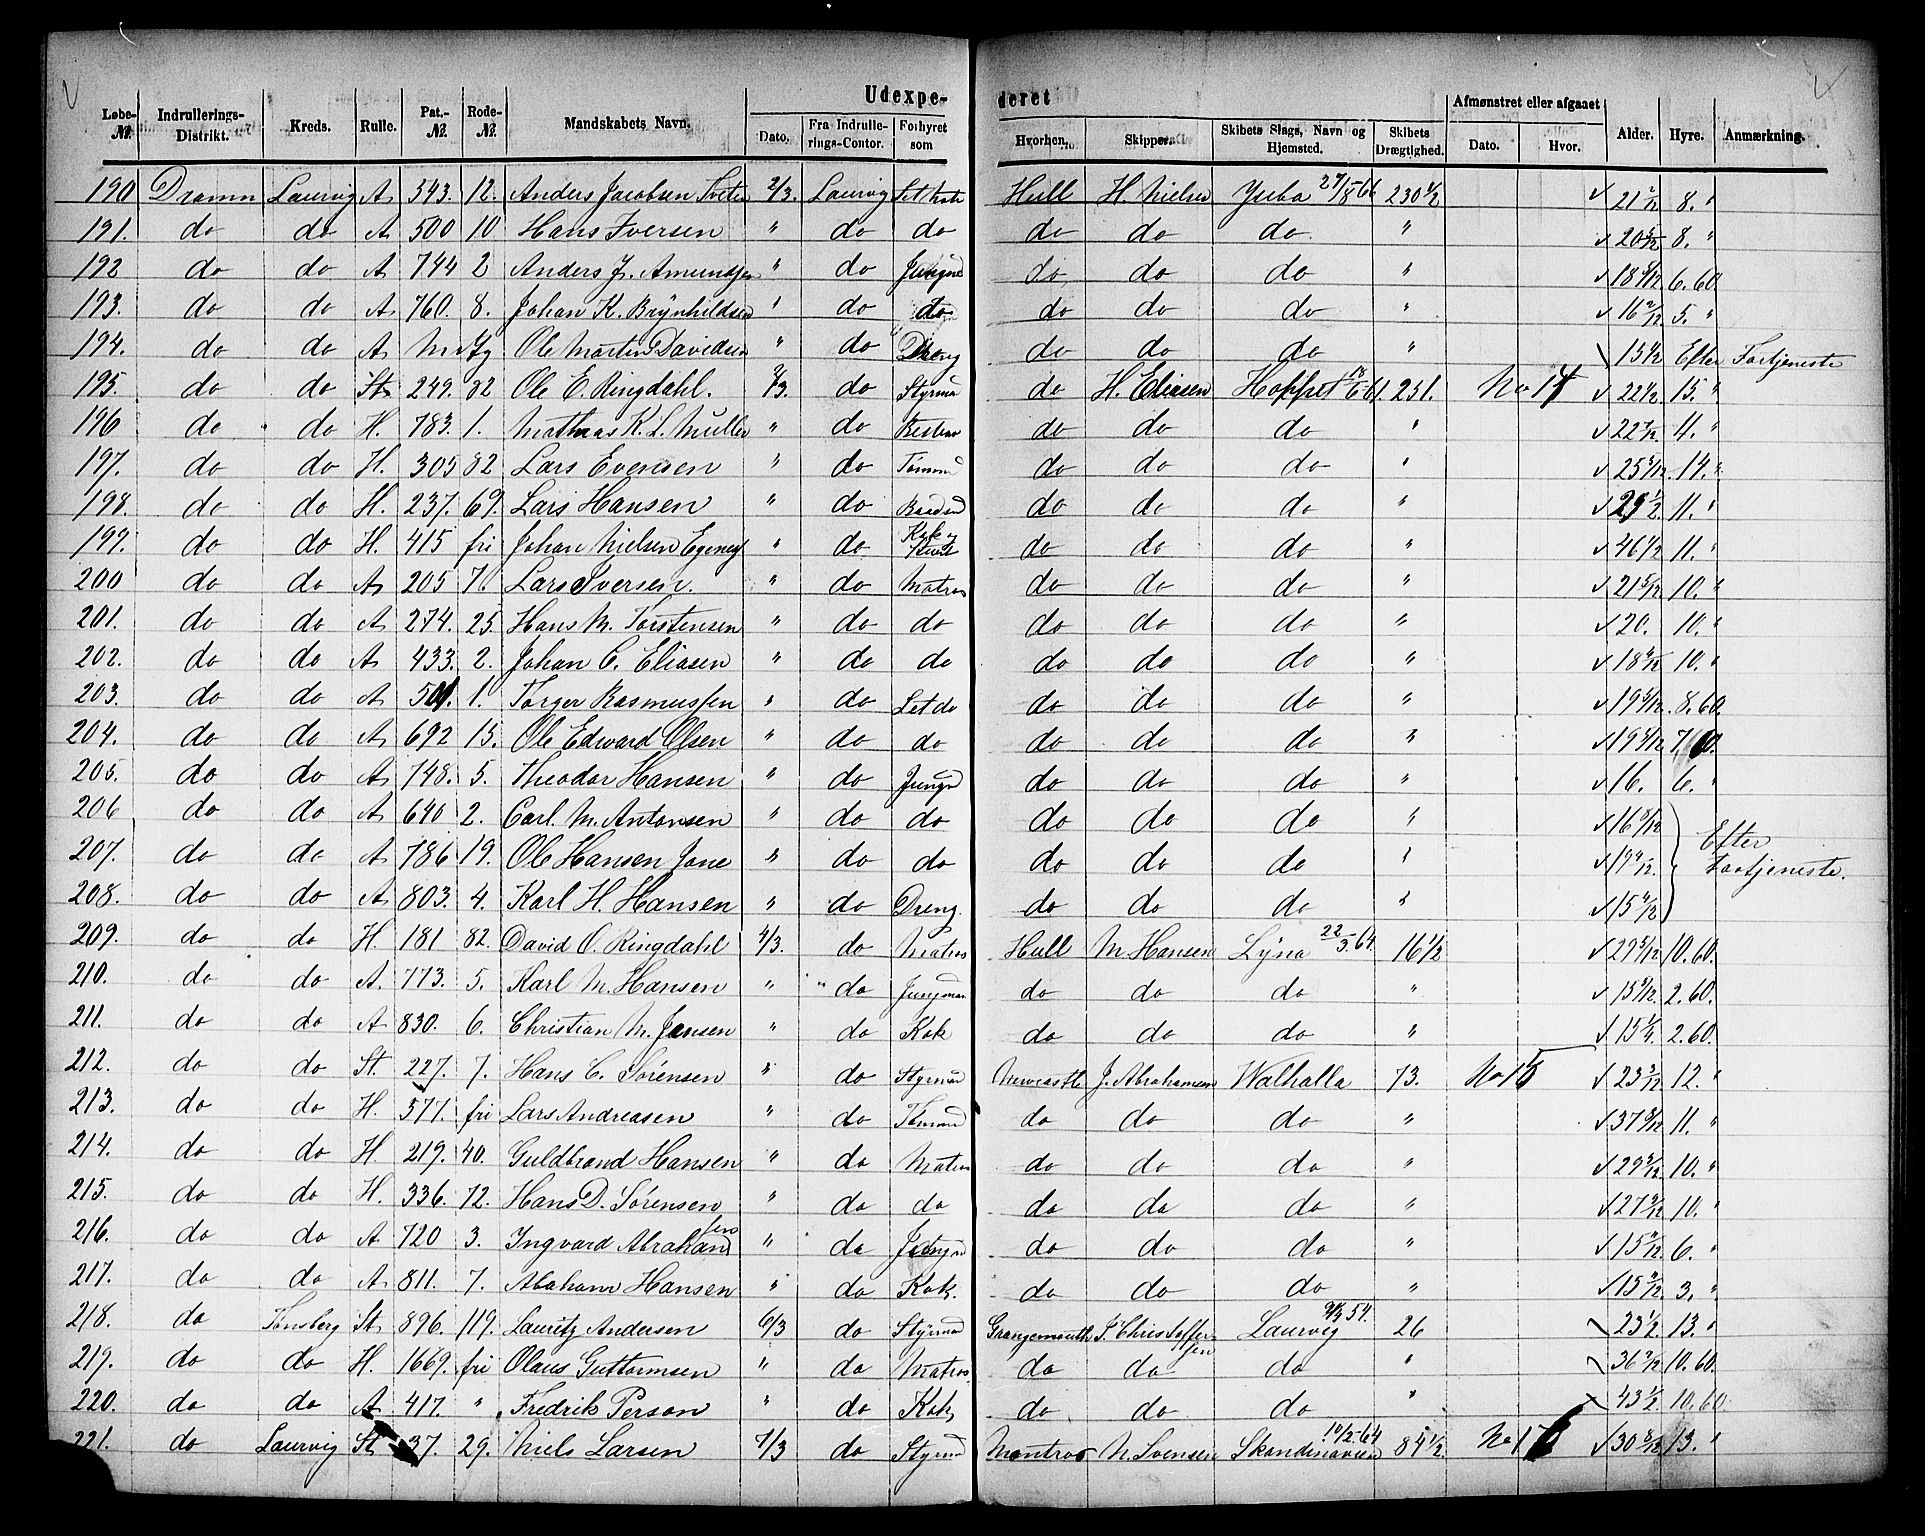 Udexpe- deret
Løbe-№. Indrullerings-Distrikt. Kreds. Rulle. Pat.-№. Rode-№. Mandskabets Navn. Dato. Fra Indrullerings-Contor. Forhyret som Hvorhen. Skipper. Skibets Slags, Navn og Hjemsted. Skibets Drægtighed. Afmønstret eller afgaaet Dato. Hvor. Alder. Hyre. Anmærkning.
190 Dramn Laurvig A 543. 12. Anders Jacobsen 2/3. Laurvig Hull H. Nielsen 27/8 66 230 1/2 21 2/12 8. "
191. do do A 500 10 Hans Iversen " do do do do do " 20 5/12 8. "
192 do do A 744 2 Anders J. Amundsen " do Jungmd do do do " 18 8/12 6. 60
193. do do A 760. 8. Johan K. Brynhildsen " do do do do do " 16 2/12 5. "
194. do do A Ole Martin Davidsen " do Dreng do do do " 15 1/2 Efter Fortjeneste
195. do do St 249. 82 Ole E. Ringdahl. 2/3. do Styrmd do H. Eliasen Haabet 251. No 14 22 1/2 15. "
196 do do H. 783. 1. Mathias K. L. Müller " do do do do " 22 7/12 4. "
197. do do H. 305 82 Lars Evensen " do Tømmd do do do " 25 3/12 14. "
198. do do H. 237. 69. Lars Hansen " do Baadsd do do do " 11. "
199. do do H. 415 fri Johan Nielsen " do Kok og do do do " 46 1/2 11. "
200 do do A 205 7. Lars Iversen. " do Matros do do do " 21 5/12 10. "
201. do do A 274. 25. Hans M. Torstensen " do do do do do " 20. 10. "
202. do do A 433. 2. Johan C. Eliasen " do do do do do " 18 9/12 10. "
203. do do A 501. 1. Torger Rasmussen " do Let do do do do " 19 5/12 8. 60.
204. do do A 692 15. Ole Edward Olsen " do do do do do " 19 3/12
205. do do A 748. 5. Theodor Hansen " do Jungd do do do " 16. 6. "
206 do do A 640 2. Carl. M. Antonsen " do do do do do " 16 8/12 Efter
207. do do A 786 19. Ole Hansen Jane " do do do do do " Fortjeneste.
208. do do A 803. 4. Karl H. Hansen " do Dreng. do do do " 15 4/12
209. do do H. 181 82. David O. Ringdahl 4/3. do Matros Hull M. Hansen Lyna 22/3 64 16 1/2 29 5/12 10. 60.
210. do do A. 773. 5. Karl M. Hansen " " do Jungman do do do " 15 9/12 2. 60.
211. do do A 830. 6. Christian M. Jansen " do Kok do do do " 15 1/4 2. 60.
212. do do St. 227. 7. Hans C. Sørensen " do Styrmd Newcastle J. Abrahamsen Walhalla 73. No 15 23 2/12 12. "
213. do do H. 577. fri Lars Andreasen " do Tømmd do do do " 37 9/12 11. "
214. do do H 219. 40. Guldbrand Hansen " do Matros do do do " 29 5/12 10. "
215. do do H. 336. 72. Hans D. Sørensen " do do do do do " 27 2/12 10. "
216. do do A 720 3. Ingvard Abrahamsen " do Jungmd do do do " 15 2/12 6. "
217. do do A 811. 7. Abraham Hansen " do Kok. do do do " 15 2/12 3. "
218. do Tønsberg St 896. 119. Lauritz Andersen 6/3 do Styrmd Grangemouth Christoffersen Laurvig 54. 26 23 1/2 13. "
219. do do H. 1669. fri Olaus Guttormsen " do Matros. do do do " 36 2/12 10. 60.
220. do do A 417. " Fredrik Person " do Kok do do do " 43 1/2 10. 60
221. do Laurvig St 37. 29. Niels Larsen 7/3 do Styrmd Montros N. Svensen Skandinavien 10/2 64 84 1/2 No 16 30 8/12 13. "